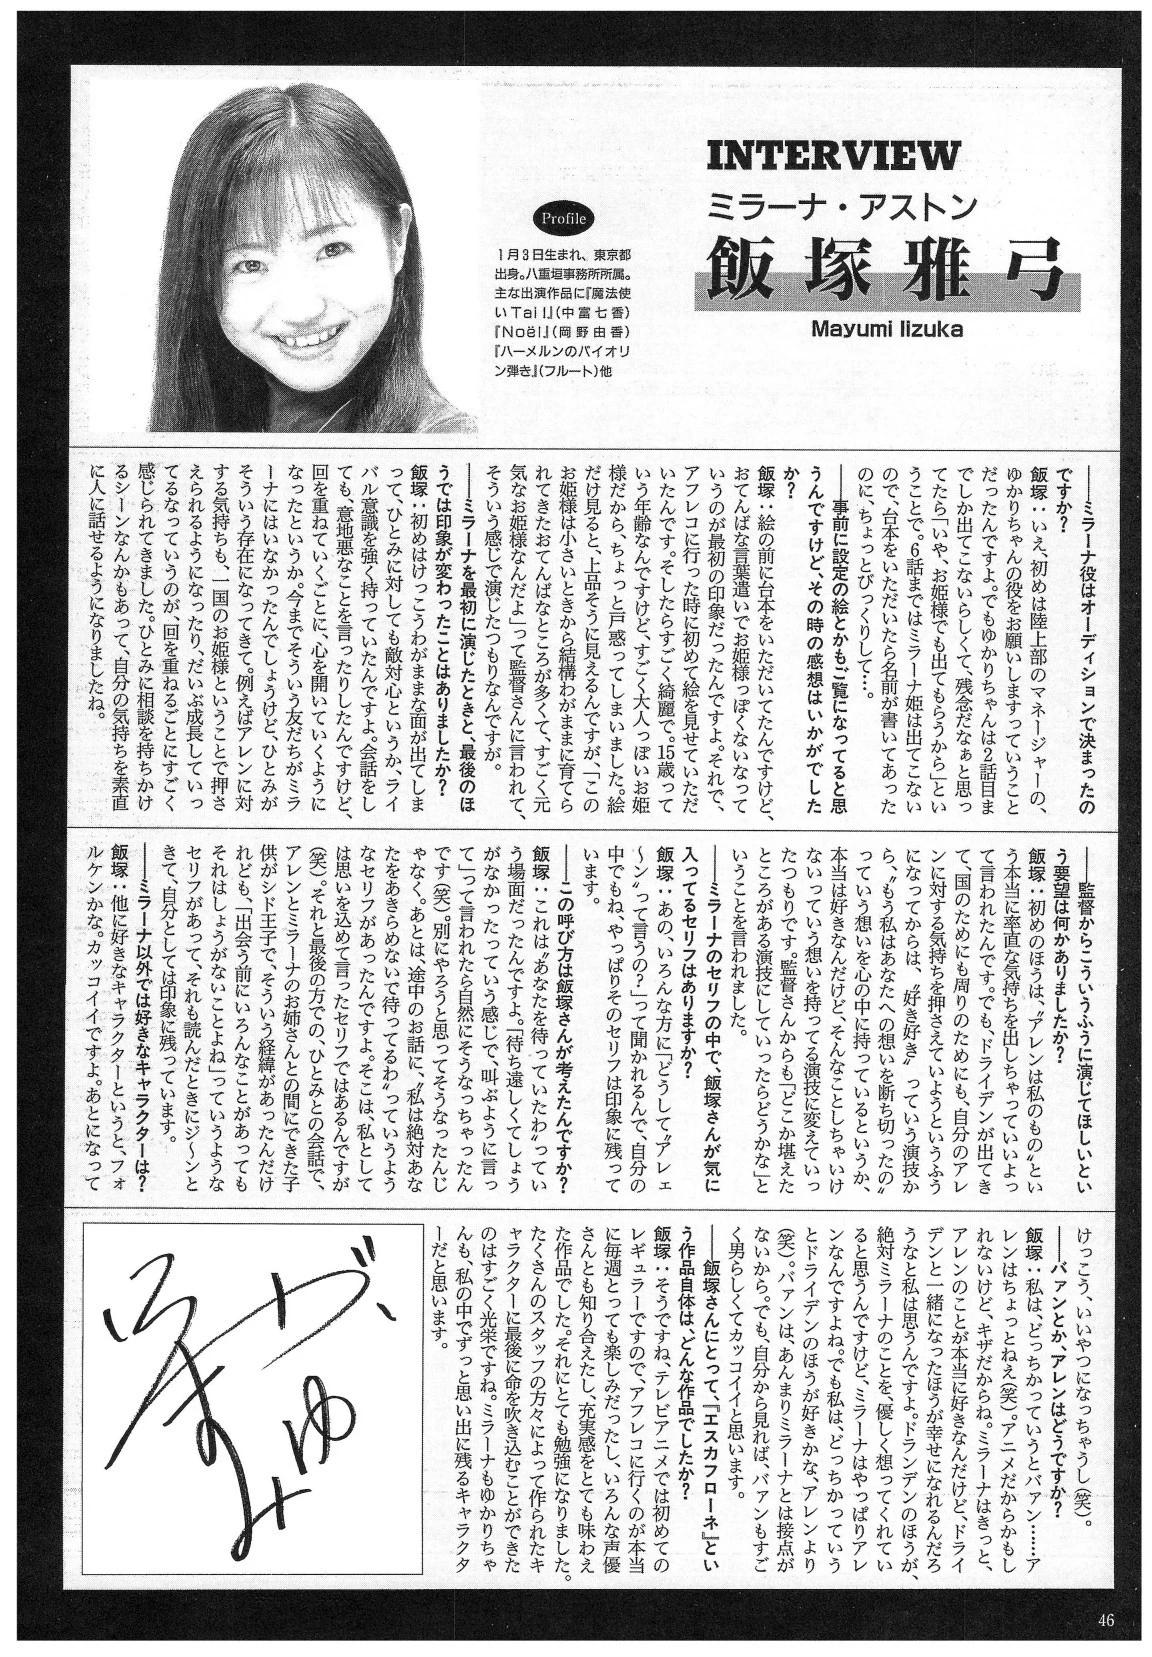 INTERVIEW
ミラーナ・アストン
飯塚雅弓
Mayumi Iizuka
Profile
1月3日生まれ、東京都
出身。八重垣事務所所属。
主な出演作品に『魔法使
いTai!』(中富七香)
『Noël』(岡野由香)
『ハーメルンのバイオリ
ン弾き』(フルート)他
――ミラーナ役はオーディションで決まったの
ですか?
飯塚:いえ、初めは陸上部のマネージャーの、
ゆかりちゃんの役をお願いしますっていうこと
だったんですよ。でもゆかりちゃんは2話目ま
でしか出てこないらしくて、残念だなぁと思っ
てたら「いや、お姫様でも出てもらうから」とい
うことで。6話まではミラーナ姫は出てこない
ので、台本をいただいたら名前が書いてあった
のに、ちょっとびっくりして…。
――事前に設定の絵とかもご覧になってると思
うんですけど、その時の感想はいかがでした
か?
飯塚:絵の前に台本をいただいてたんですけど、
おてんばな言葉遣いでお姫様っぽくないなって
いうのが最初の印象だったんですよ。それで、
アフレコに行った時に初めて絵を見せていただ
いたんです。そしたらすごく綺麗で。15歳って
いう年齢なんですけど、すごく大人っぽいお姫
様だから、ちょっと戸惑ってしまいました。絵
だけ見ると、上品そうに見えるんですが、「この
お姫様は小さいときから結構わがままに育てら
れてきたおてんばなところが多くて、すごく元
気なお姫様なんだよ」って監督さんに言われて、
そういう感じで演じたつもりなんですが。
――ミラーナを最初に演じたときと、最後のほ
うでは印象が変わったことはありましたか?
飯塚:初めはけっこうわがままな面が出てしま
って、ひとみに対しても敵対心というか、ライ
バル意識を強く持っていたんですよ。会話をし
ても、意地悪なことを言ったりしたんですけど、
回を重ねていくごとに、心を開いていくように
なったというか。今までそういう友だちがミラ
ーナにはいなかったんでしょうけど、ひとみが
そういう存在になってきて。例えばアレンに対
する気持ちも、一国のお姫様ということで押さ
えられるようになったり、だいぶ成長していっ
てるなっていうのが、回を重ねるごとにすごく
感じられてきました。ひとみに相談を持ちかけ
るシーンなんかもあって、自分の気持ちを素直
に人に話せるようになりましたね。
――監督からこういうふうに演じてほしいとい
う要望は何かありましたか?
飯塚:初めのほうは、〝アレンは私のもの〟とい
う本当に率直な気持ちを出しちゃっていいよっ
て言われたんです。でも、ドライデンが出てき
て、国のためにも周りのためにも、自分のアレ
ンに対する気持ちを押さえていようというふう
になってからは、〝好き好き〟っていう演技か
ら、〝もう私はあなたへの想いを断ち切ったの〟
っていう想いを心の中に持っているというか、
本当は好きなんだけど、そんなことしちゃいけ
ないっていう想いを持ってる演技に変えていっ
たつもりです。監督さんからも「どこか堪えた
ところがある演技にしていったらどうかな」と
いうことを言われました。
――ミラーナのセリフの中で、飯塚さんが気に
入ってるセリフはありますか?
飯塚:あの、いろんな方に「どうして〝アレェ
~ン〟って言うの?」って聞かれるんで、自分の
中でもね、やっぱりそのセリフは印象に残って
います。
――この呼び方は飯塚さんが考えたんですか?
飯塚:これは〝あなたを待っていたわ〟ってい
う場面だったんですよ。「待ち遠しくてしょう
がなかったっていう感じで、叫ぶように言っ
て」って言われたら自然にそうなっちゃったん
です(笑)。別にやろうと思ってそうなったんじ
ゃなく。あとは、途中のお話に、〝私は絶対あな
たをあきらめないで待ってるわ〟っていうよう
なセリフがあったんですよ。そこは、私として
は思いを込めて言ったセリフではあるんですが
(笑)。それと最後の方での、ひとみとの会話で、
アレンとミラーナのお姉さんとの間にできた子
供がシド王子で、そういう経緯があったんだけ
れども、「出会う前にいろんなことがあっても
それはしょうがないことよね」っていうような
セリフがあって、それも読んだときにジ~ンと
きて、自分としては印象に残っています。
――ミラーナ以外では好きなキャラクターは?
飯塚:他に好きなキャラクターというと、フォ
ルケンかな。カッコイイですよ。あとになって
けっこう、いいやつになっちゃうし(笑)。
――バァンとか、アレンはどうですか?
飯塚:私は、どっちかっていうとバァン……ア
レンはちょっとねえ(笑)。アニメだからかもし
れないけど、キザだからね。ミラーナはきっと、
アレンのことが本当に好きなんだけど、ドライ
デンと一緒になったほうが幸せになれるんだろ
うなと私は思うんですよ。ドランデンのほうが、
絶対ミラーナのことを、優しく想ってくれてい
ると思うんですけど、ミラーナはやっぱりアレ
ンなんですよね。でも私は、どっちかっていう
とドライデンのほうが好きかな、アレンより
(笑)。バァンは、あんまりミラーナとは接点が
ないから。でも、自分から見れば、バァンもすご
く男らしくてカッコイイと思います。
――飯塚さんにとって、『エスカフローネ』とい
う作品自体は、どんな作品でしたか?
飯塚:そうですね、テレビアニメでは初めての
レギュラーですので、アフレコに行くのが本当
に毎週とっても楽しみだったし、いろんな声優
さんとも知り合えたし、充実感をとても味わえ
た作品でした。それにとても勉強になりました。
たくさんのスタッフの方々によって作られたキ
ャラクターに最後に命を吹き込むことができた
のはすごく光栄ですね。ミラーナもゆかりちゃ
んも、私の中でずっと思い出に残るキャラクタ
ーだと思います。
46